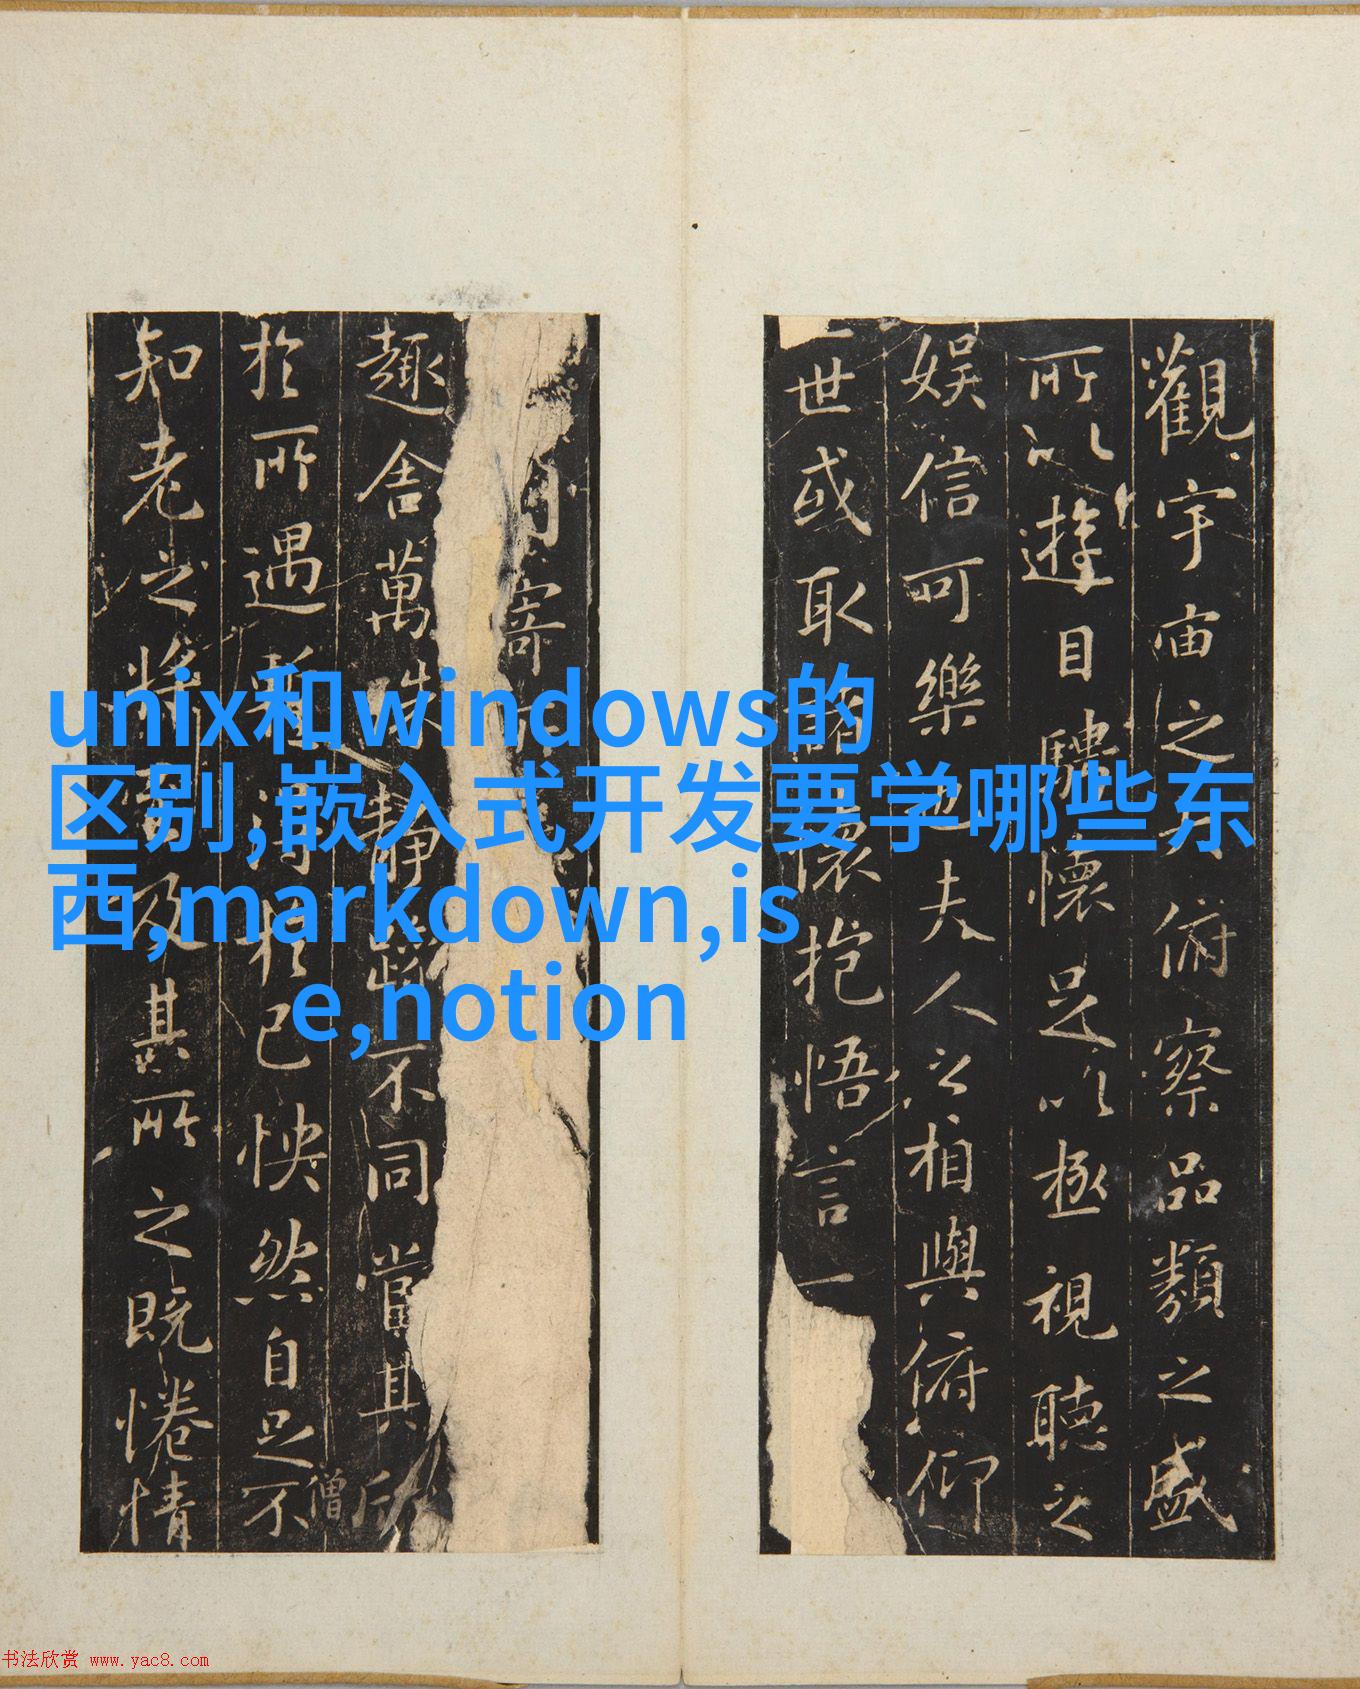 unix和windows的
区别,嵌入式开发要学哪些东
西,markdown,is
e,notion
觀宇宙之俯察品類之盛
所以遊目騁懷足以極視聽之
娱信可樂也夫人之相與俯仰
世或取諸懷抱悟言一
寄
趣舍萬殊靜躁不同當其欣
於所遇暫得於己怏然自足不
僧
知老之將至及其所之既惓情
书法欣赏 www.yac8.com